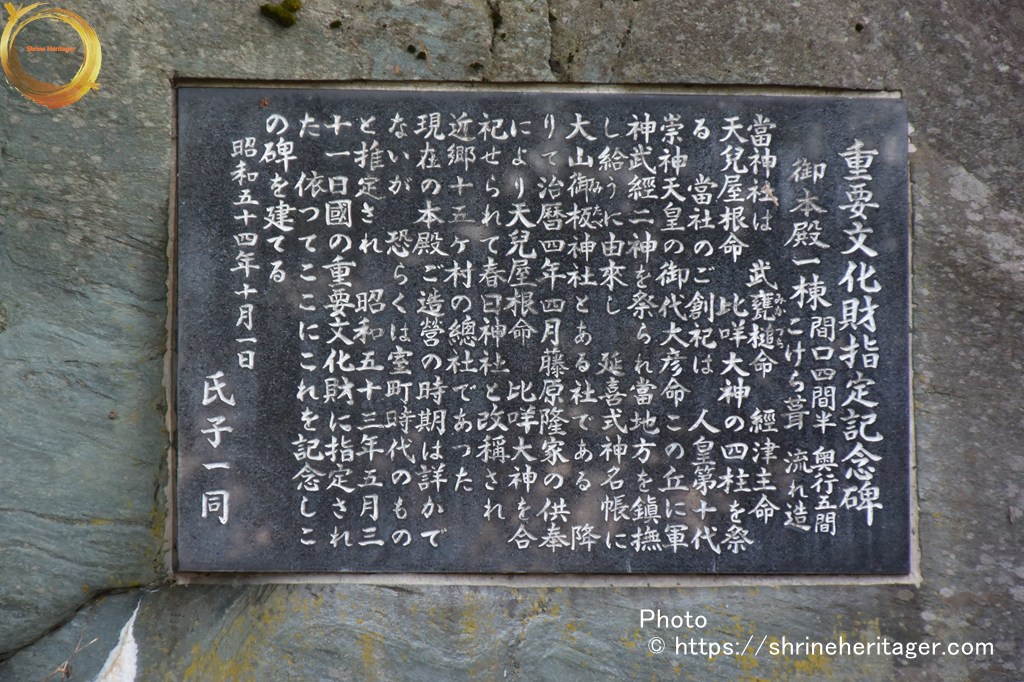 重要文化財指定記念碑
御本殿一棟 間口四間半 奥行五間 こけら葺 流れ造
當神社は 武甕槌命 經津主命
みかつち
天兒屋根命 比咩大神の四柱を祭
る 當社のご創祀は 人皇第十代
崇神天皇の御代大彦命この丘に軍
神武經二神を祭られ當地方を鎮撫
し給うに由來し 延喜式神名帳に
大山御板神社とある社である 降
みいた
りて治暦四年四月藤原隆家の供奉
により天兒屋根命 比咩大神を合
祀せられて春日神社と改稱され
近郷十五ヶ村の總社であつた
現在の本殿ご造營の時期は詳かで
ないが 恐らくは室町時代のもの
と推定され 昭和五十三年五月三
十一日國の重要文化財に指定され
た 依つてここにこれを記念しこ
の碑を建てる
昭和五十四年十月一日
氏子一同
Shrine Heritager
Photo
© https://shrineheritager.com